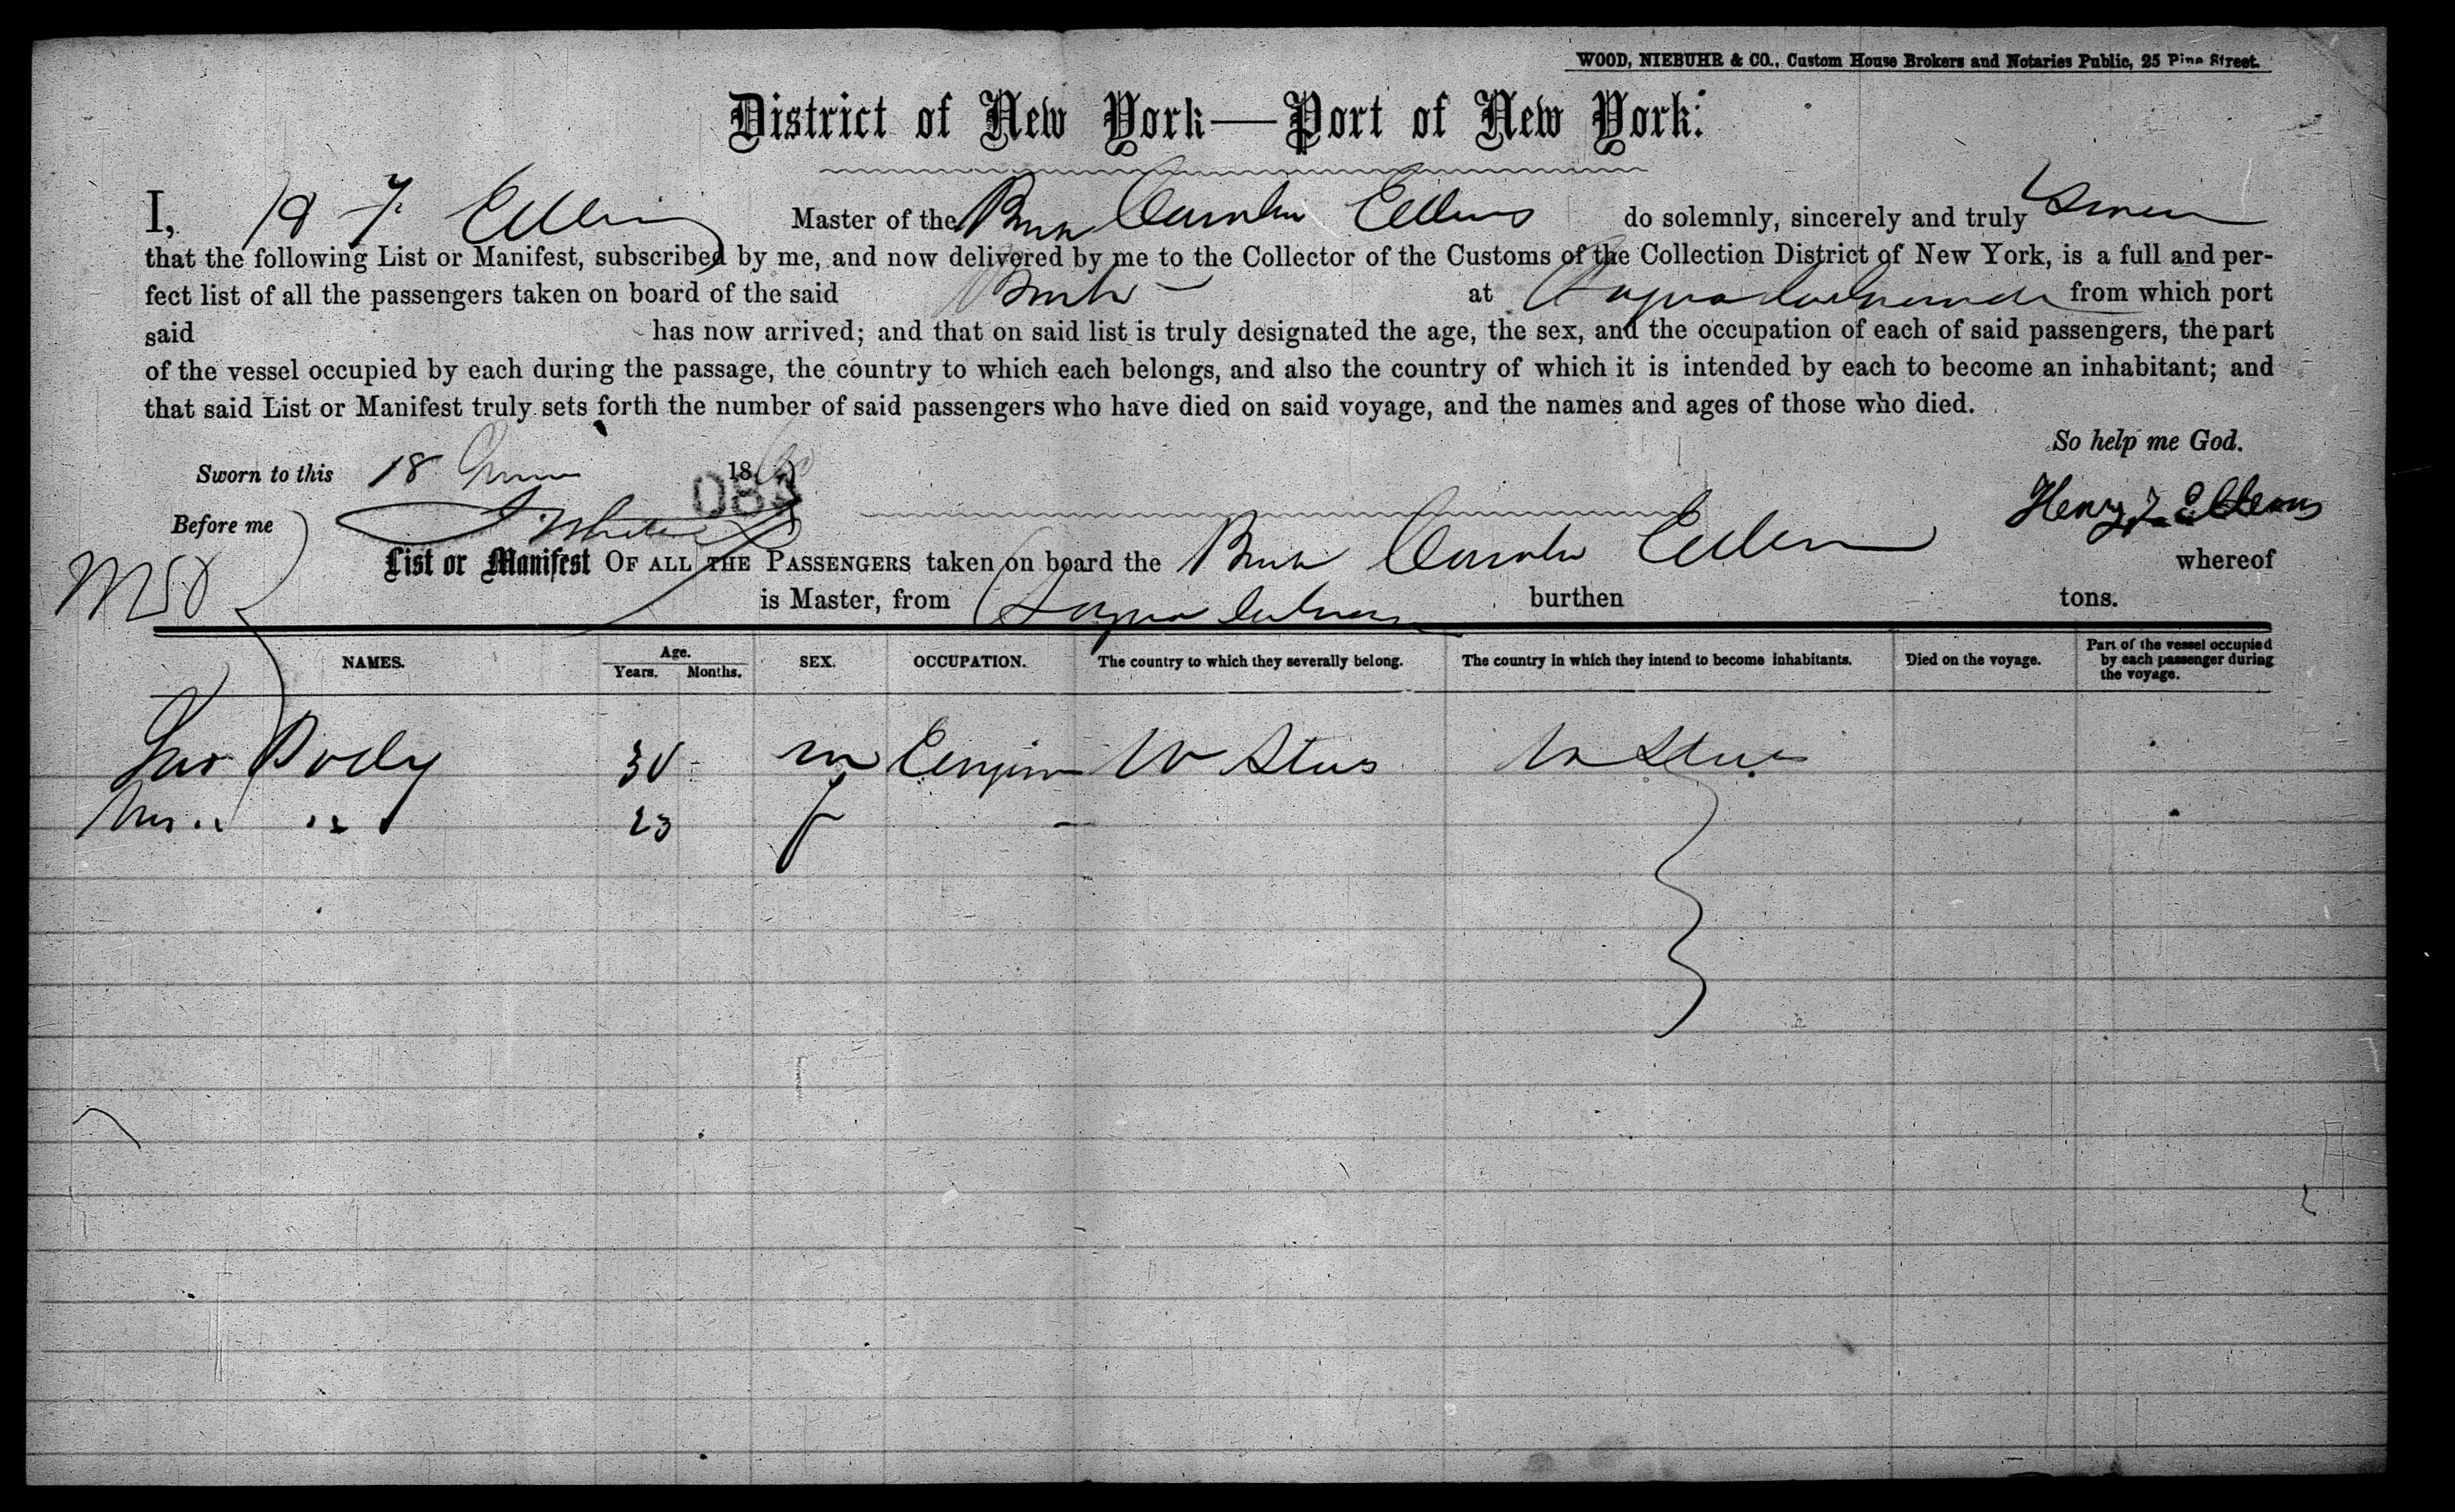 WOOD, NIEBUHR & CO., Custom House Brokers and Notaries Public, 25 Pine Street.
District of New York—Port of New York:
I, H F Ellems Master of the Bark Ellems do solemnly, sincerely and truly Swear
that the following List or Manifest, subscribed by me, and now delivered by me to the Collector of the Customs of the Collection District of New York, is a full and per-
fect list of all the passengers taken on board of the said Bark at from which port
said has now arrived; and that on said list is truly designated the age, the sex, and the occupation of each of said passengers, the part
of the vessel occupied by each during the passage, the country to which each belongs, and also the country of which it is intended by each to become an inhabitant; and
that said List or Manifest truly sets forth the number of said passengers who have died on said voyage, and the names and ages of those who died.
So help me God.
Sworn to this 18 June 18
083
Before me Henry F. Ellems
List or Manifest OF ALL THE PASSENGERS taken on board the Bark whereof
is Master, from burthen tons.
NAMES. Age. Years. Months. SEX. OCCUPATION. The country to which they severally belong. The country in which they intend to become inhabitants. Died on the voyage. Part of the vessel occupied by each passenger during the voyage.
30 m U States U States
Mrs " " 23 f